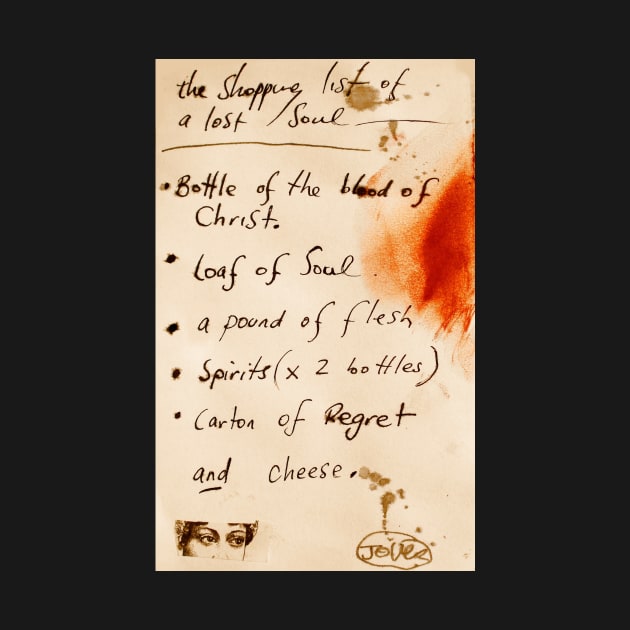 the shopping list of
a lost Soul
• Bottle of the blood of
Christ.
• Loaf of Soul.
• a pound of flesh
• Spirits (x 2 bottles)
• Carton of Regret
and cheese.